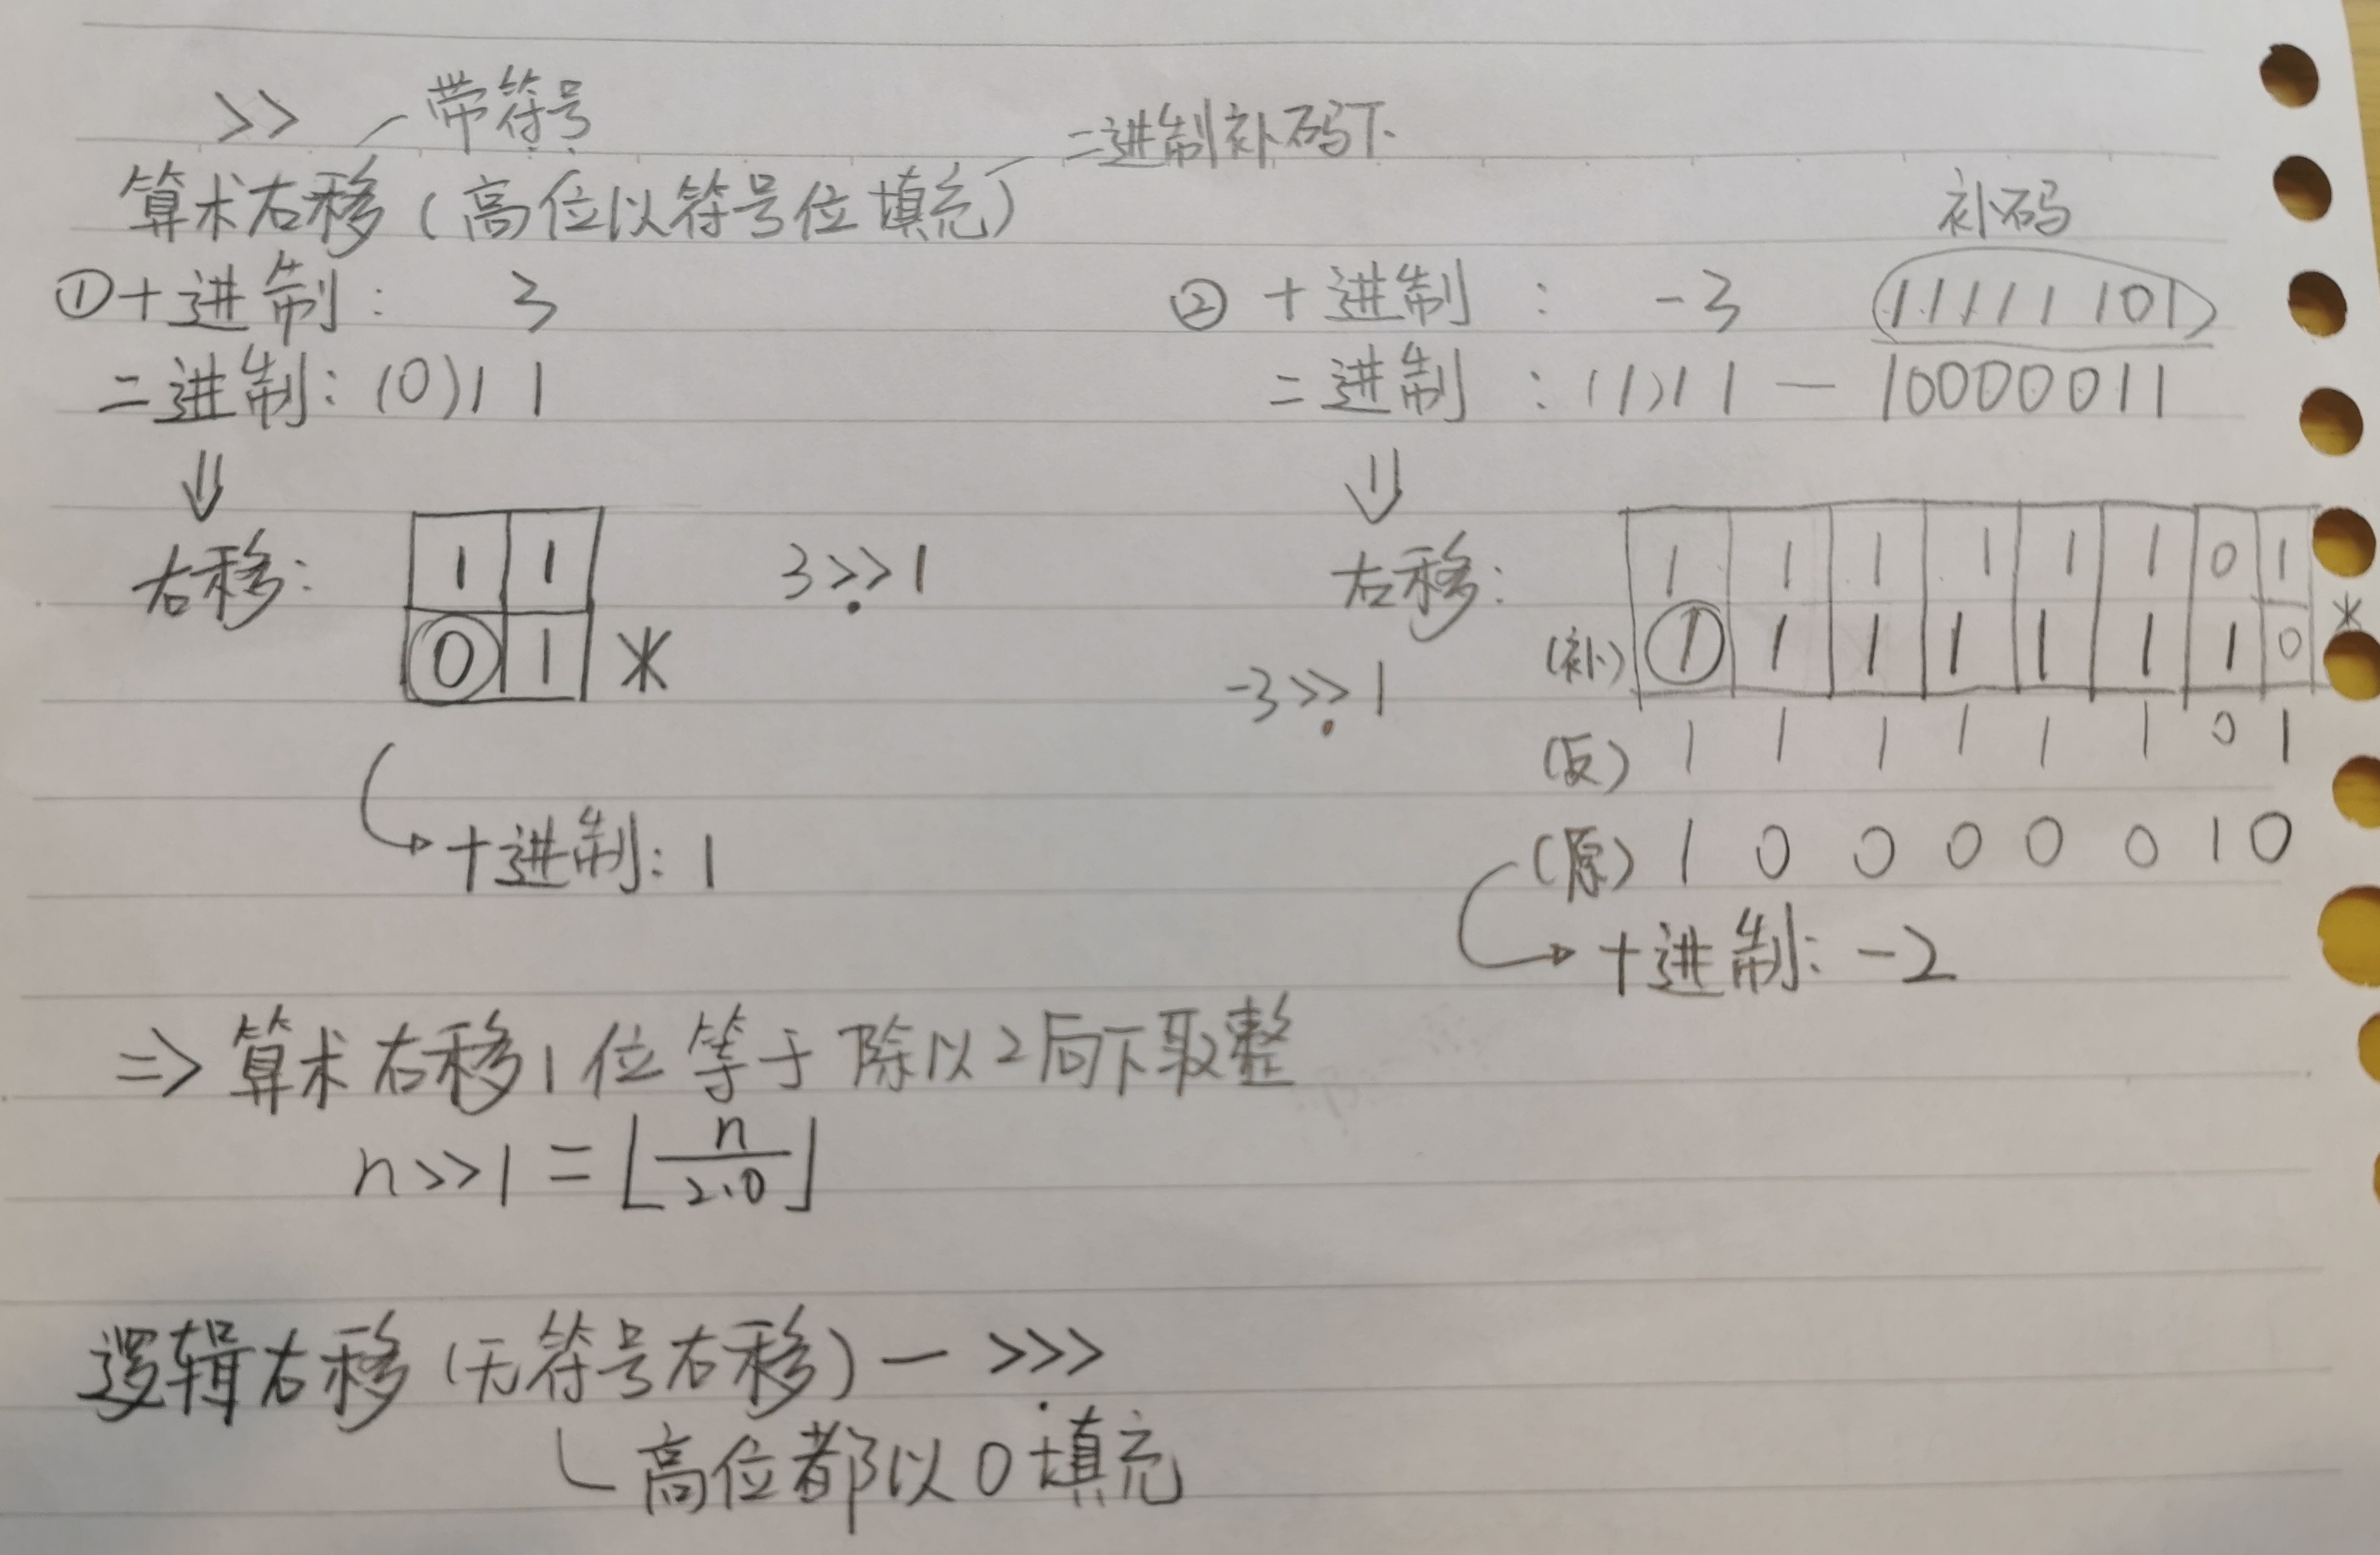 >> 带符号
二进制补码下
算术右移(高位以符号位填充)
①十进制: 3
二进制:(0)11
⇓
右移:
1 1
0 1 *
3>>1
十进制:1
补码
②十进制: -3 11111101
二进制:(1)11 — 10000011
⇓
右移:
1 1 1 1 1 1 0 1
(补) 1 1 1 1 1 1 1 0 *
-3>>1
(反) 1 1 1 1 1 1 0 1
(原) 1 0 0 0 0 0 1 0
十进制:-2
=> 算术右移1位等于除以2向下取整
n>>1=⌊n/2.0⌋
逻辑右移(无符号右移)— >>>
高位都以0填充